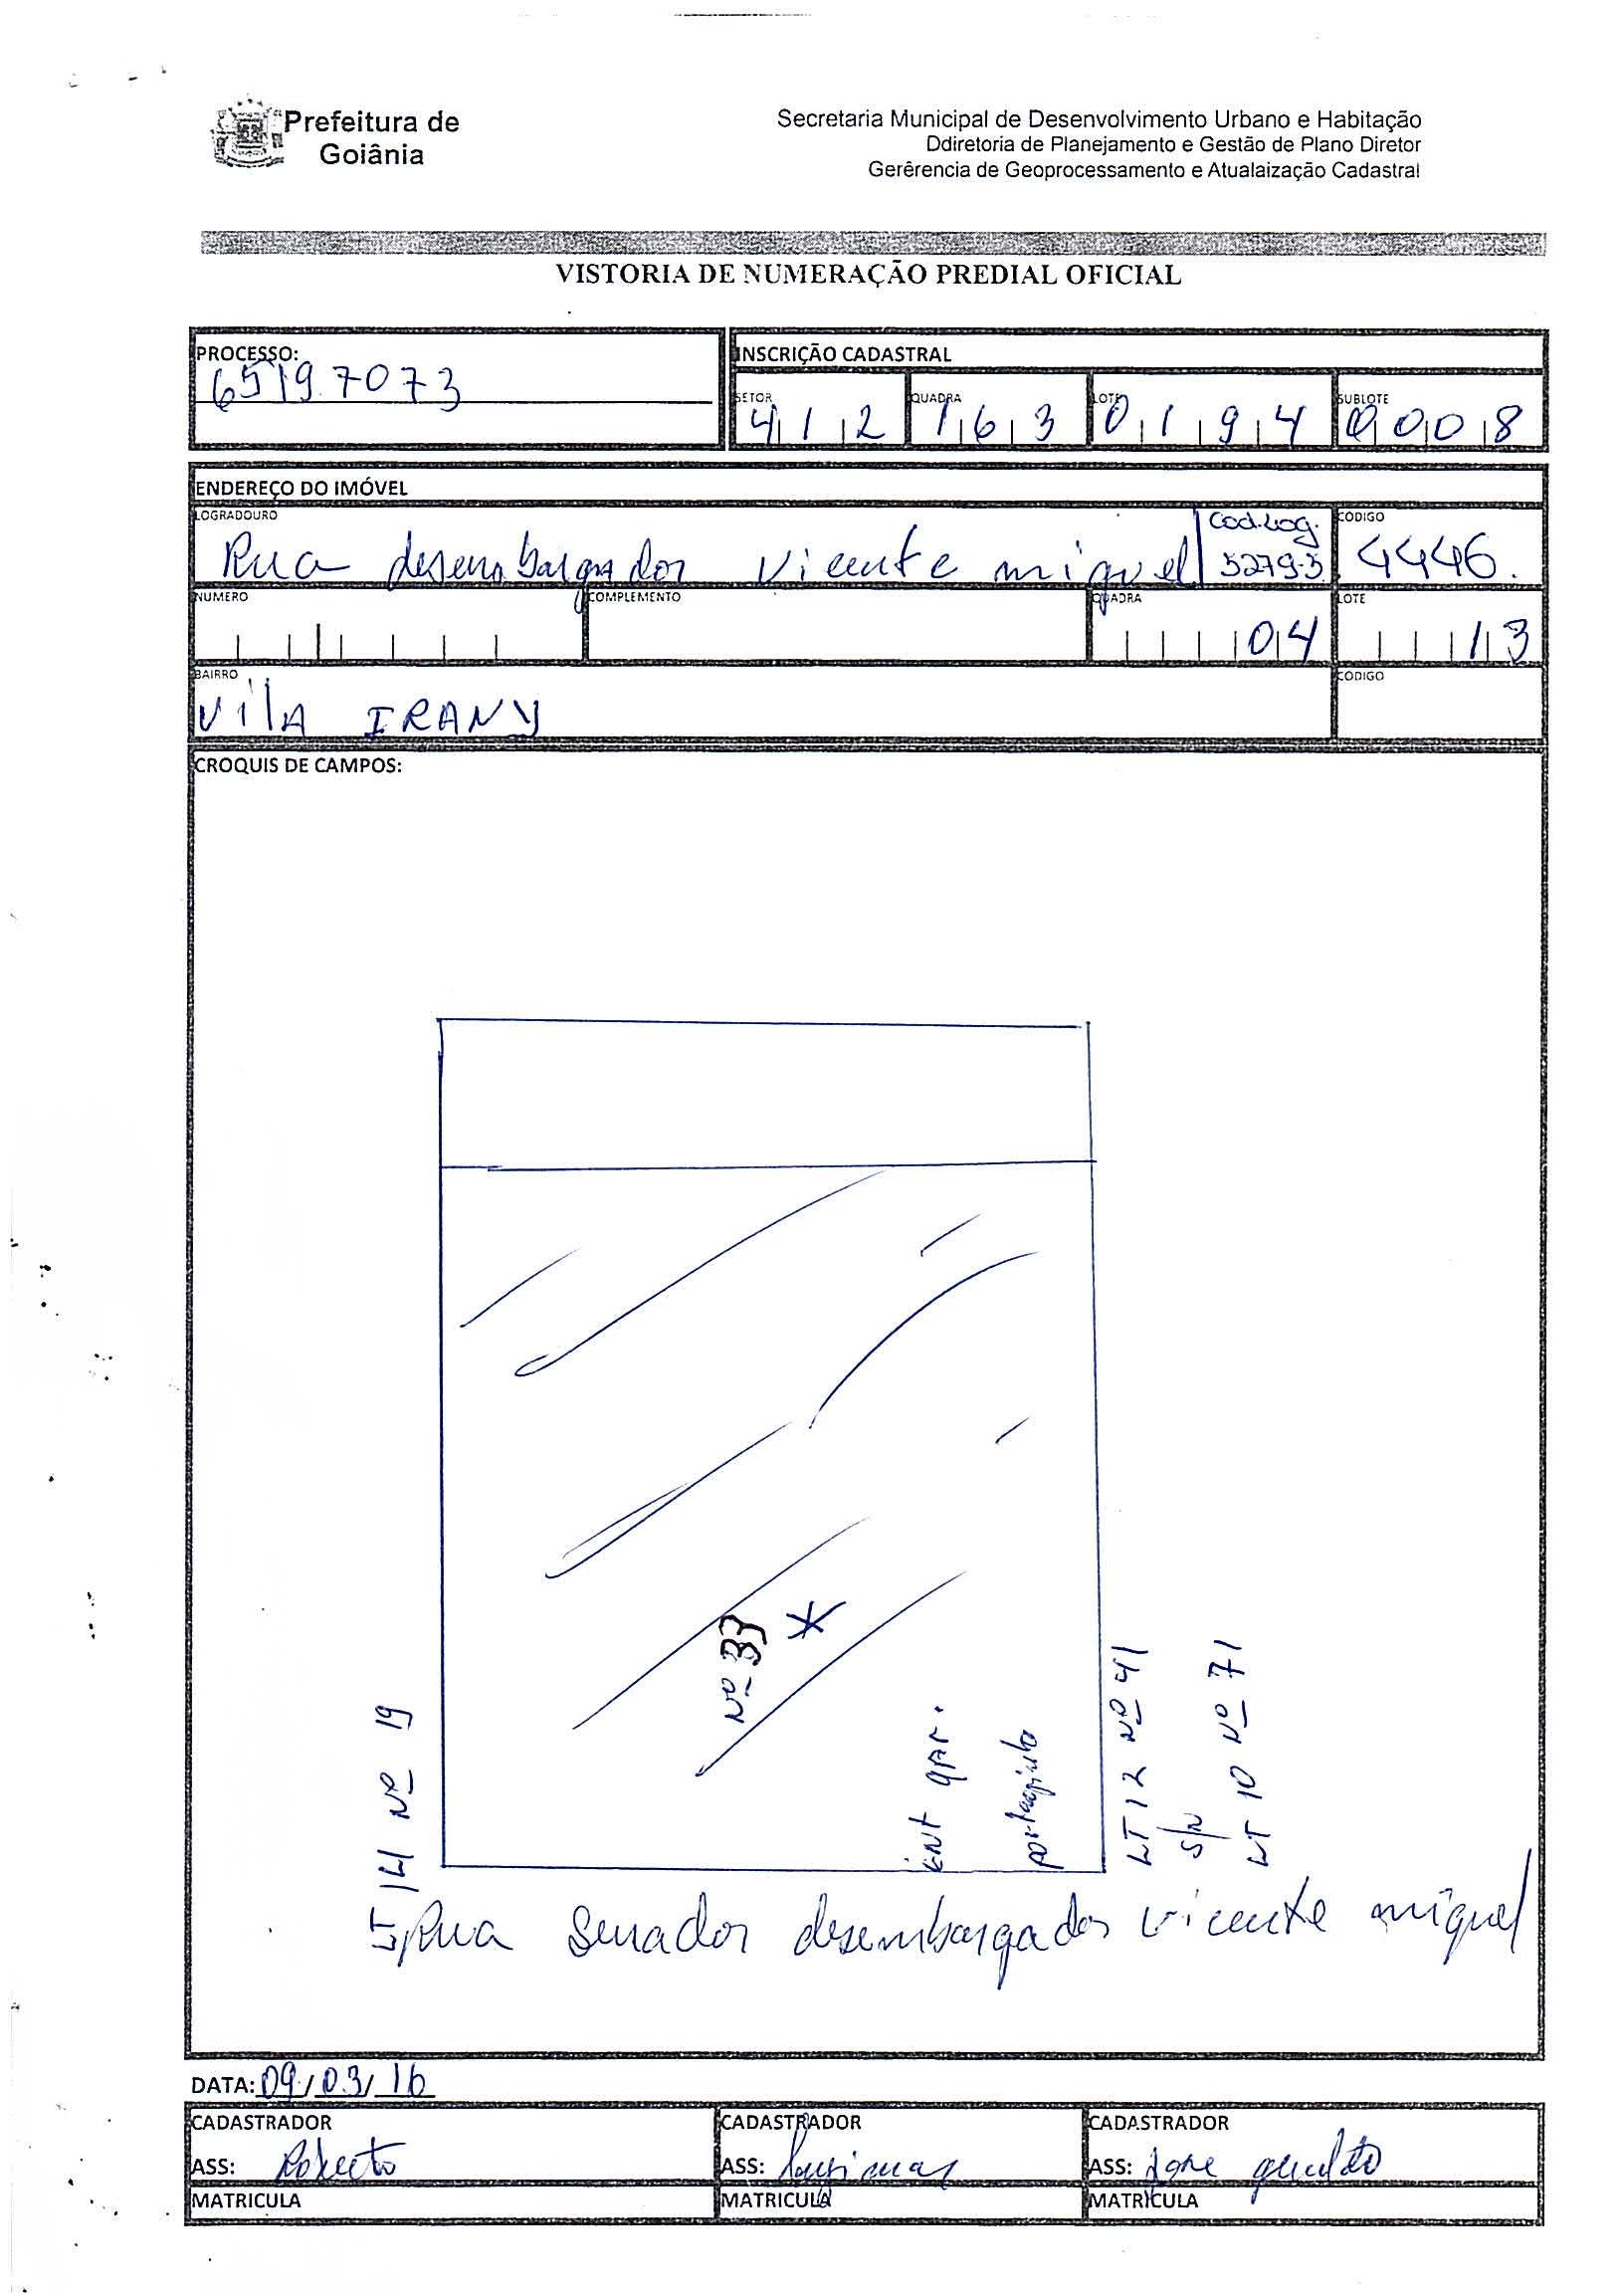 Prefeitura de
Goiânia
Secretaria Municipal de Desenvolvimento Urbano e Habitação
Ddiretoria de Planejamento e Gestão de Plano Diretor
Gerêrencia de Geoprocessamento e Atualaização Cadastral
VISTORIA DE NUMERAÇÃO PREDIAL OFICIAL
PROCESSO:
65197073
INSCRIÇÃO CADASTRAL
SETOR QUADRA LOTE SUBLOTE
412 163 0194 0008
ENDEREÇO DO IMÓVEL
LOGRADOURO Cod.Log. CODIGO
Rua desembargador Vicente miguel 5279-5 4446.
NUMERO COMPLEMENTO QUADRA LOTE
04 13
BAIRRO CODIGO
Vila IRANY
CROQUIS DE CAMPOS:
Nº 33
LT 14 Nº 19
ENT gar.
portãozinho
LT 12 Nº 41
S/N
LT 10 Nº 71
Rua Senador desembargador Vicente miguel
DATA: 09/03/16
CADASTRADOR CADASTRADOR CADASTRADOR
ASS: Roberto ASS: ASS: Jose geraldo
MATRICULA MATRICULA MATRICULA